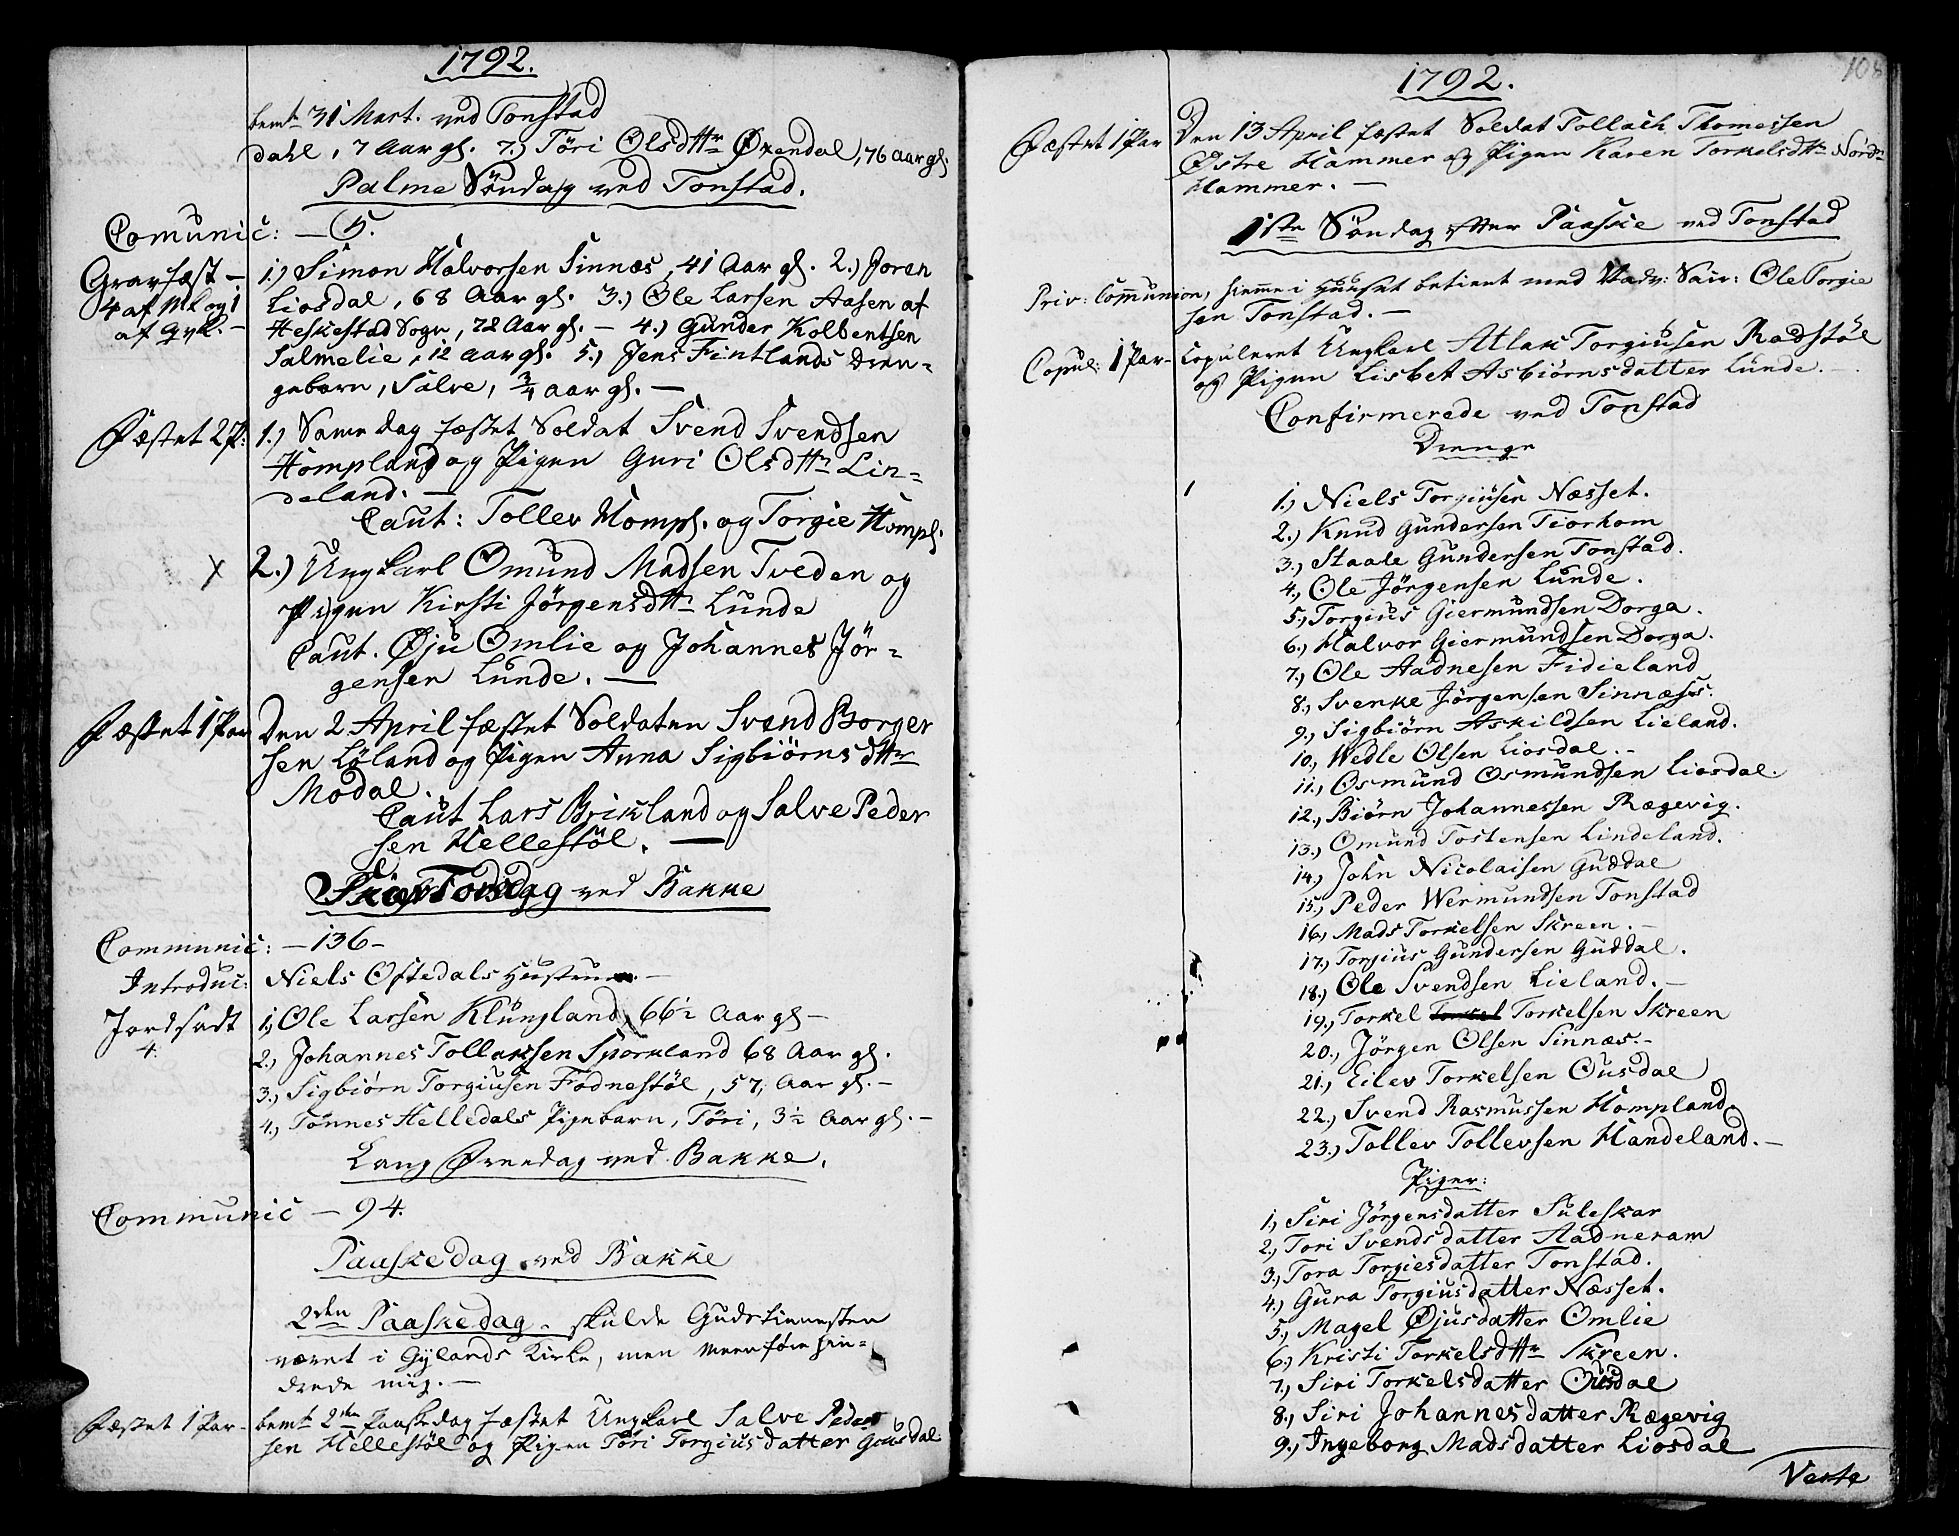 1792.
bemte 31 Mart. ved Tonstad
dahl, 7 Aar gl. 7.) Töri Olsdttr Øxendal, 76 aar gl.
Palme Söndag ved Tonstad.
Comunic: — 5.
Gravfæst — 1.) Simon Halvorsen Sinnæs, 41 Aar gl. 2.) Joren
4 af Mk og 1 Liosdal, 68 Aar gl. 3.) Ole Larsen Aasen af
af Gyl. — Heskestad Sogn, 72 Aar gl. — 4.) Gunder Kolbentsen
Salmelie, 12 aar gl. 5.) Jens Fintlands Dren-
gebarn, Salve, 3/4 aar gl. —
Fæstet 2 P: 1.) Same dag fæstet Soldat Svend Svendsen
Hompland og Pigen Guri Olsdttr Lin-
deland. —
Caut: Tollev Hompl. og Torgie Hompl.
x 2.) Ungkarl Omund Madsen Tveden og
Pigen Kirsti Jörgensdttr Lunde
Caut. Øju Omlie og Johannes Jör-
gensen Lunde. —
Fæstet 1 Par Den 2 April fæstet Soldaten Svend Borger
sen Löland og Pigen Anna Sigbiörnsdttr
Modal.
Caut Lars Birkland og Salve Peder
sen Hellestöl. —
Skiær Torsdag ved Bakke
Communic: — 136 —
Introduc: Niels Oftedals Hustrue. —
Jordsadt 1.) Ole Larsen Klungland 66½ Aar gl —
4. 2.) Johannes Tollaksen Sporkland 68 Aar gl.
3.) Sigbiörn Torgiusen Fodnestöl, 57, Aar gl. —
4.) Tönnes Helledals Pigebarn, Töri, 3½ Aar gl. —
Lang Fredag ved Bakke.
Communic — 94.
Paaskedag ved Bakke
2den Paaskedag. skulde Gudstienesten
været i Gylands Kirke, men Meenföre hin-
drede mig. —
Fæstet 1 Par — bemte 2den Paaskedag fæstet Ungkarl Salve Peder
sen Hellestöl og Pigen Töri Torgiusdatter Gousdal
108
1792.
Fæstet 1 Par Den 13 April fæstet Soldat Tollach Thomessen
Østre Hammer og Pigen Karen Torkelsdttr Nordr
Hammer. —
1ste Söndag efter Paaske ved Tonstad
Priv: Communion, hiemme i Huuset betient med Nadv: Sacr: Ole Torgie
sen Tonstad. —
Copul: 1 Par — Copuleret Ungkarl Atlak Torgiusen Rødstöl
og Pigen Lisbet Asbiörnsdatter Lunde. —
Confirmerede ved Tonstad
Drenge
1.) Niels Torgiusen Næsset.
2.) Knud Gundersen Tiorhom
3.) Staale Gundersen Tonstad.
4.) Ole Jörgensen Lunde.
5.) Torgius Giermundsen Dorga.
6.) Halvor Giermundsen Dorga.
7.) Ole Aadnesen Fidieland
8.) Svenke Jörgensen Sinnæs.
9.) Sigbiörn Askildsen Lieland.
10.) Wedle Olsen Liosdal. —
11.) Osmund Osmundsen Liosdal.
12.) Biörn Johannessen Rægevig.
13.) Omund Tostensen Lindeland.
14.) John Nicolaisen Guddal
15.) Peder Wermundsen Tonstad
16.) Mads Torkelsen Skreen. —
17.) Torgius Gundersen Guddal.
18.) Ole Svendsen Lieland. —
19.) Torkel Torkelsen Skreen
20.) Jörgen Olsen Sinnæs. —
21.) Eilev Torkelsen Ousdal
22.) Svend Rasmussen Hompland.
23.) Tollev Tollevsen Handeland. —
Piger:
1.) Siri Jörgensdatter Suleskar
2.) Tori Svendsdatter Aadneram
3.) Tora Torgiesdatter Tonstad.
4.) Gura Torgiusdatter Næsset.
5.) Magel Øjusdatter Omlie
6.) Kristi Torkelsdttr Skreen.
7.) Siri Torkelsdatter Ousdal
8.) Siri Johannesdatter Rægevig
9.) Ingeborg Madsdatter Liosdal
Verte